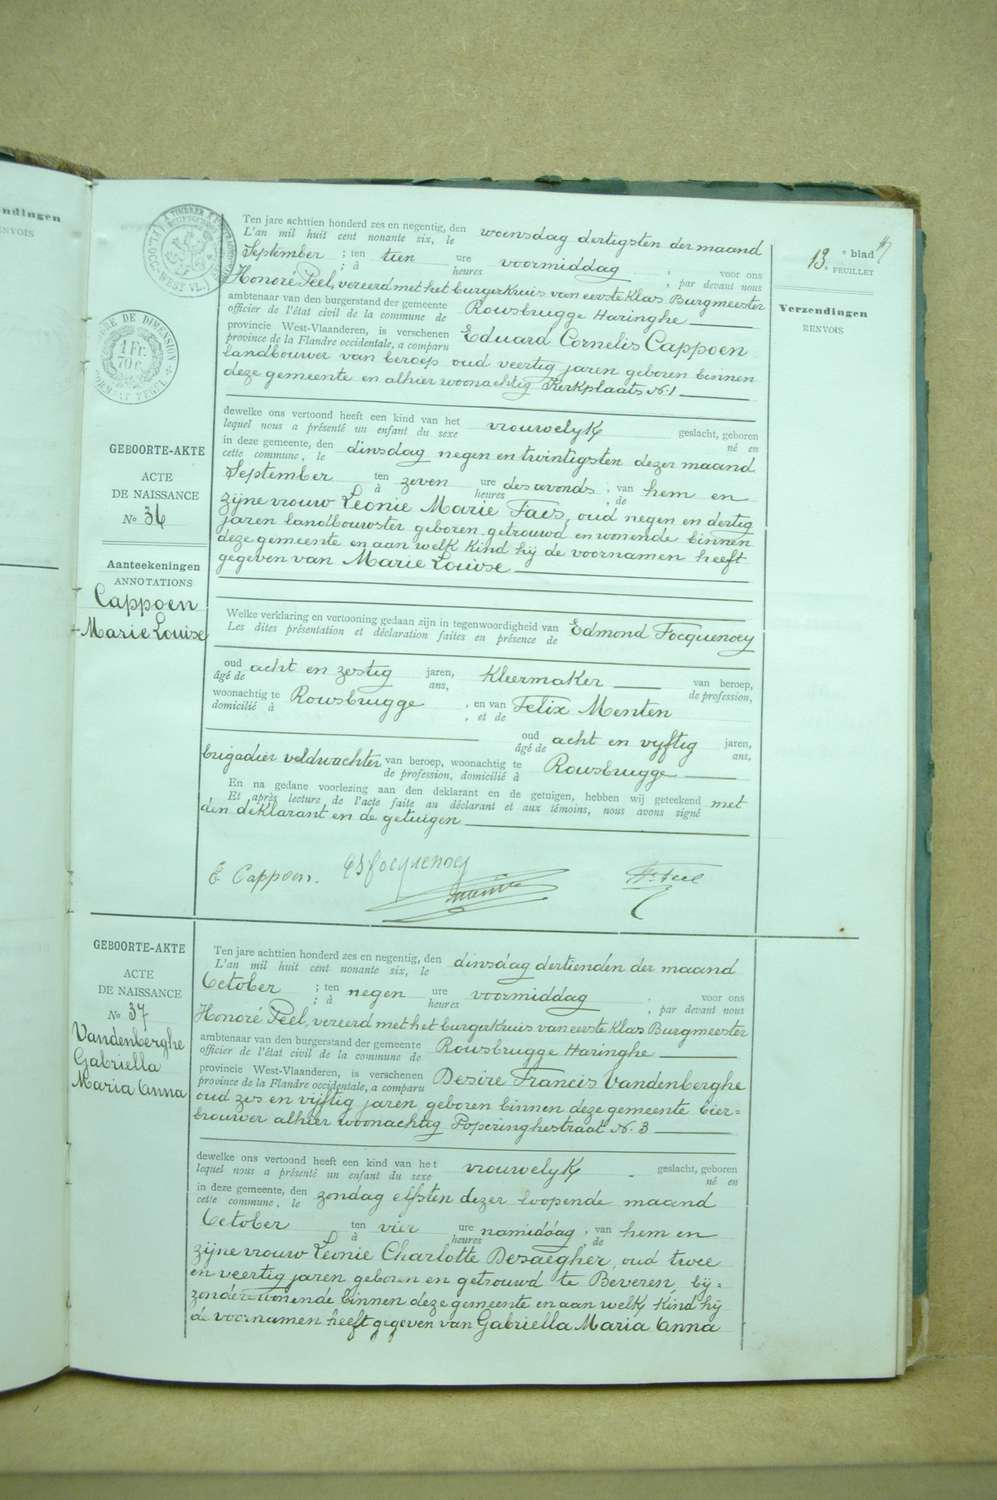 ndingen
ENVOIS
13e blad
FEUILLET
Verzendingen
RENVOIS
DE DIMENSION
1 Fr.
70 c.
GEBOORTE-AKTE
ACTE
DE NAISSANCE
No 36
Aanteekeningen
ANNOTATIONS
Cappoen
Marie Louise
Ten jare achttien honderd zes en negentig, den
L'an mil huit cent nonante six, le
woensdag dertigsten der maand
September ; ten tien ure voormiddag , voor ons
; à heures , par devant nous
Honoré Peel, vereerd met het burgerkruis van eerste Klas Burgmeester
ambtenaar van den burgerstand der gemeente
officier de l'état civil de la commune de
Rousbrugge Haringhe
provincie West-Vlaanderen, is verschenen
province de la Flandre occidentale, a comparu
Eduard Cornelis Cappoen
landbouwer van beroep oud veertig jaren geboren binnen
deze gemeente en alhier woonachtig Kerkplaats No 1
dewelke ons vertoond heeft een kind van het
lequel nous a présenté un enfant du sexe
vrouwelyk geslacht, geboren
né en
in deze gemeente, den
cette commune, le
dinsdag negen en twintigsten dezer maand
September ten zeven ure des avonds , van hem en
à heures de
zijne vrouw Léonie Marie Faes, oud negen en dertig
jaren landbouwster geboren getrouwd en wonende binnen
deze gemeente en aan welk kind hij de voornamen heeft
gegeven van Marie Louise
Welke verklaring en vertooning gedaan zijn in tegenwoordigheid van
Les dites présentation et déclaration faites en présence de
Edmond Focquenoey
oud
âgé de
acht en zestig jaren, Kleermaker van beroep,
ans, de profession,
woonachtig te
domicilié à
Rousbrugge , en van Felix Menten
, et de
oud
âgé de
acht en vyftig jaren,
ans,
brigadier veldwachter van beroep, woonachtig te
de profession, domicilié à
Rousbrugge
En na gedane voorlezing aan den deklarant en de getuigen, hebben wij geteekend met
Et après lecture de l'acte faite au déclarant et aux témoins, nous avons signé
den deklarant en de getuigen
E Cappoen.
Ed focquenoey
H. Peel
GEBOORTE-AKTE
ACTE
DE NAISSANCE
No 37
Vandenberghe
Gabriella
Maria Anna
Ten jare achttien honderd zes en negentig, den
L'an mil huit cent nonante six, le
dinsdag dertienden der maand
October ; ten negen ure voormiddag , voor ons
; à heures , par devant nous
Honoré Peel, vereerd met het burgerkruis van eerste Klas Burgmeester
ambtenaar van den burgerstand der gemeente
officier de l'état civil de la commune de
Rousbrugge Haringhe
provincie West-Vlaanderen, is verschenen
province de la Flandre occidentale, a comparu
Desire Francis Vandenberghe
oud zes en vijftig jaren geboren binnen deze gemeente bier=
brouwer alhier woonachtig Poperinghestraat No. 3
dewelke ons vertoond heeft een kind van het
lequel nous a présenté un enfant du sexe
vrouwelyk geslacht, geboren
né en
in deze gemeente, den
cette commune, le
zondag elfsten dezer loopende maand
October ten vier ure namiddag , van hem en
à heures , de
zijne vrouw Léonie Charlotte Desaegher, oud twee
en veertig jaren geboren en getrouwd te Beveren, bij=
zonder wonende binnen deze gemeente en aan welk kind hij
de voornamen heeft gegeven van Gabriella Maria Anna